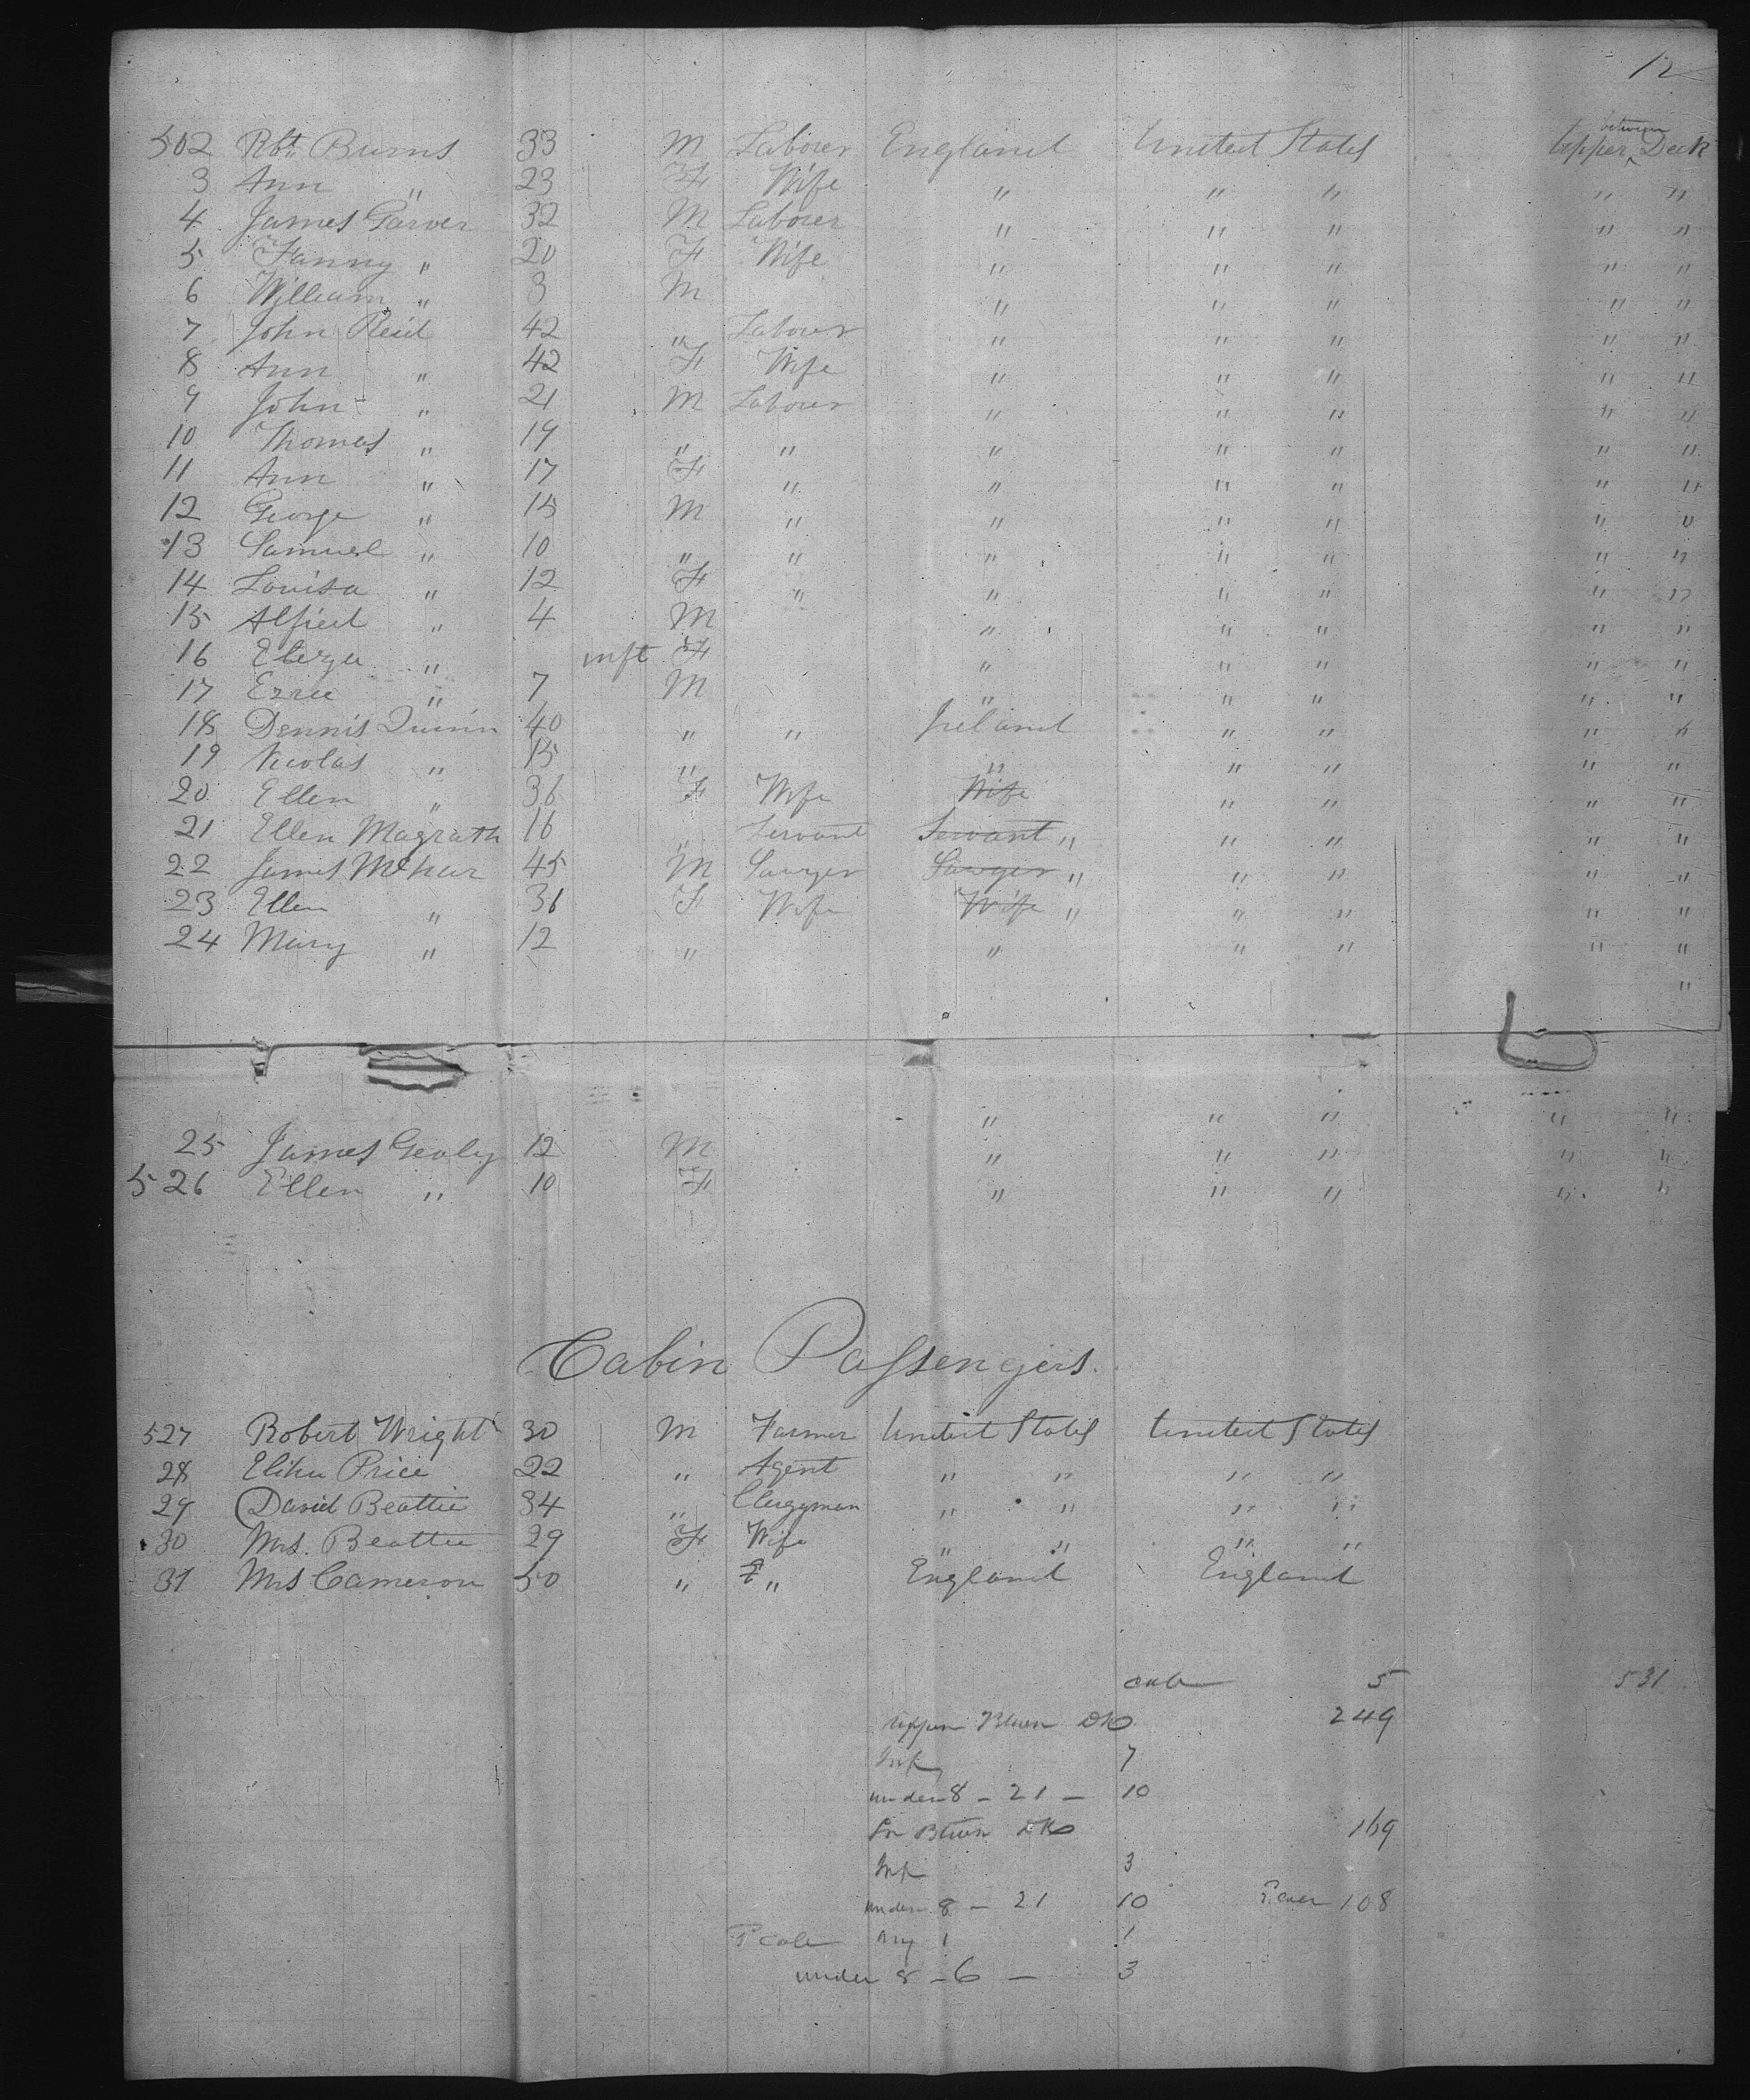 12
502 Rbt Burns 33 M Laborer England United States Upper between Deck
3 Ann " 23 F Wife " " " " "
4 James Garver 32 M Laborer " " " " "
5 Fanny " 20 F Wife " " " " "
6 William " 3 M " " " " "
7 John Reid 42 " Laborer " " " " "
8 Ann " 42 F Wife " " " " "
9 John " 21 M Laborer " " " " "
10 Thomas " 19 " " " " " " "
11 Ann " 17 F " " " " " "
12 George " 15 M " " " " " "
13 Samuel " 10 " " " " " " "
14 Louisa " 12 F " " " " " "
15 Alfred " 4 M " " " " "
16 Eliza " inft F " " " " "
17 " 7 M " " " " "
18 Dennis Quinn 40 " " Ireland " " " "
19 Nicolas " 15 " " " " " "
20 Ellen " 36 F Wife Wife " " " "
21 Ellen Magrath 16 " Servant Servant " " " " "
22 James 45 M Sawyer Sawyer " " " " "
23 Ellen " 36 F Wife Wife " " " " "
24 Mary " 12 " " " " " "
"
" " " " "
25 James Gealy 12 M " " " " "
526 Ellen " 10 F " " " " "
Cabin Passengers.
527 Robert Wright 30 M Farmer United States United States
28 Elihu Price 22 " Agent " " " "
29 David Beattie 34 " Clergyman " " " "
30 Mrs. Beattie 29 F Wife " " " "
31 Mrs Cameron 50 " " England England
5 531
upper 249
Inf 7
under 8 - 21 - 10
169
Inf 3
under 8 - 21 10 108
1 1
under 8 - 6 - 3